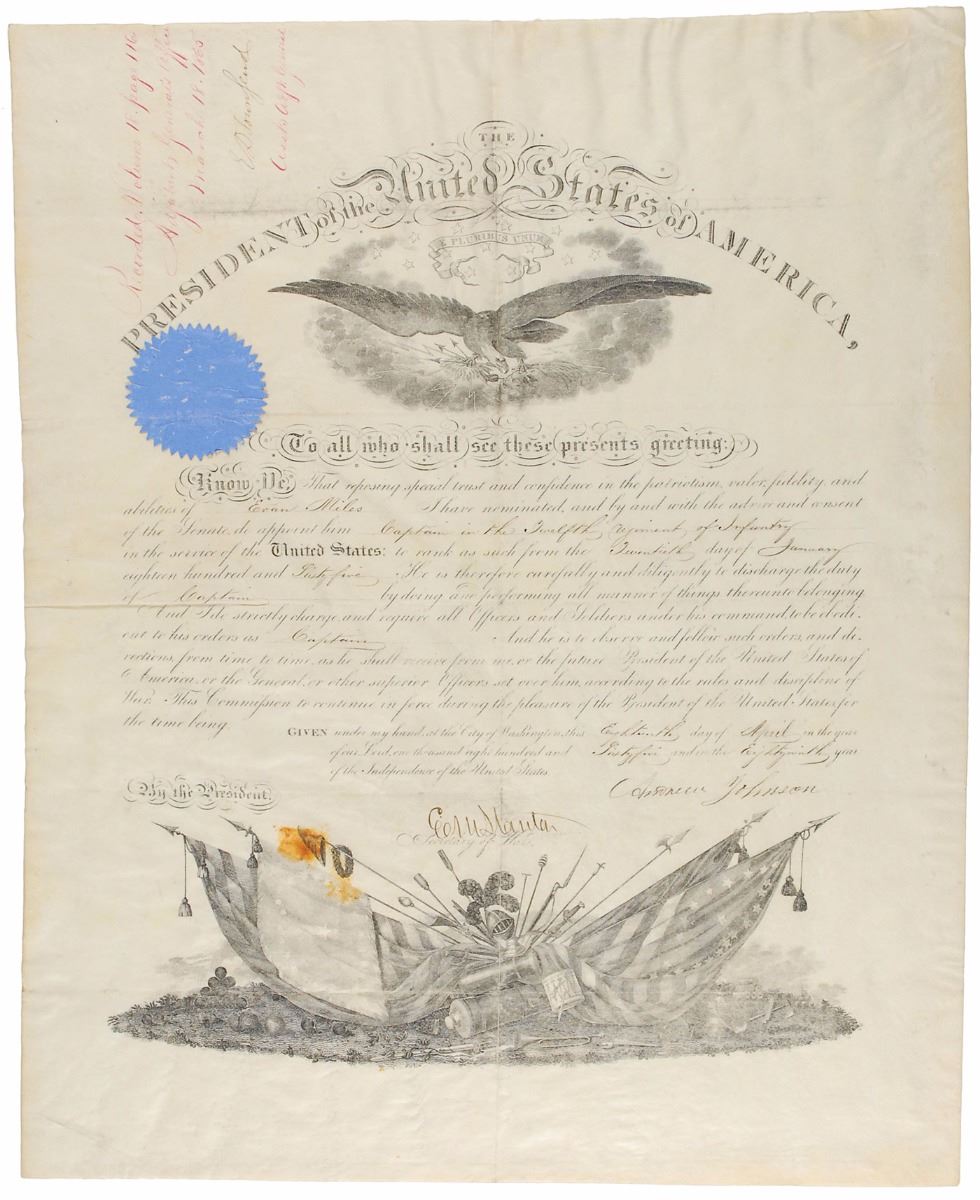 Recorded, Volume 18. page 116
Adjutant General's Office
March 18. 1865
E D Townsend
Asst Adjt General
THE
PRESIDENT of the United States of AMERICA,
E PLURIBUS UNUM
To all who shall see these presents greeting:
Know Ye, That reposing special trust and confidence in the patriotism, valor, fidelity and
abilities of Evan Miles I have nominated, and by and with the advice and consent
of the Senate, do appoint him Captain in the Twelfth regiment of Infantry
in the service of the United States: to rank as such from the Twentieth day of January
eighteen hundred and Sixty five. He is therefore carefully and diligently to discharge the duty
of Captain by doing and performing all manner of things thereunto belonging.
And I do strictly charge, and require all Officers and Soldiers under his command, to be obedi-
ent to his orders as Captain And he is to observe and follow such orders, and di-
rections, from time to time, as he shall receive from me, or the future President of the United States of
America, or the General, or other superior Officers set over him, according to the rules and discipline of
War. This Commission to continue in force during the pleasure of the President of the United States, for
the time being.
GIVEN under my hand, at the City of Washington, this Eighteenth day of April in the year
of our Lord, one thousand eight hundred and Sixty five and in the Eighty ninth year
of the Independence of the United States
By the President,
Andrew Johnson
Edwin M Stanton
Secretary of War.